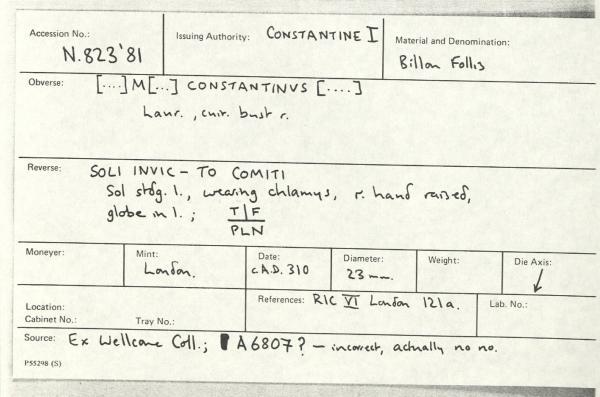 Accession No.: N.823'81
Issuing Authority: CONSTANTINE I
Material and Denomination: Billon Follis
Obverse: [....] M[...] CONSTANTINVS [....]
Laur., cuir. bust r.
Reverse: SOLI INVIC - TO COMITI
Sol stdg. l., wearing chlamys, r. hand raised,
globe in l.; T|F
PLN
Moneyer:
Mint: London.
Date: c A.D. 310
Diameter: 23 mm.
Weight:
Die Axis: ↙
Location:
Cabinet No.: Tray No.:
References: RIC VI London 121a.
Lab. No.:
Source: Ex Wellcome Coll.; A6807? - incorrect, actually no no.
P55298 (S)